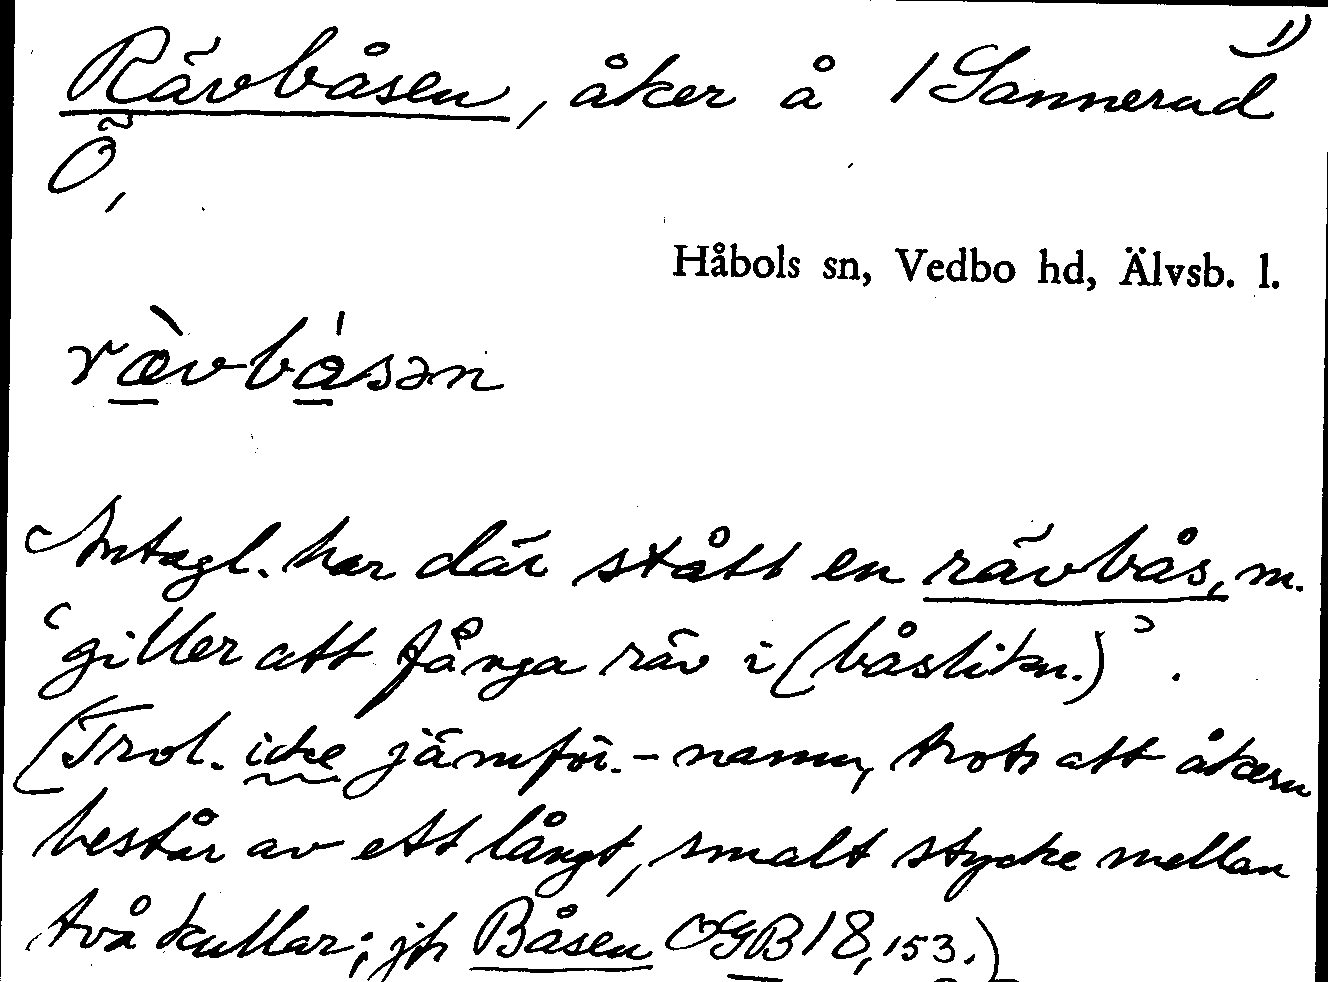 1)
Rävbåsen, åker å 1 Sannerud
Ö,
Håbols sn, Vedbo hd, Älvsb. l.
ræ̀vbǻsən
Antagl. har där stått en rävbås, m.
'giller att fånga räv i (båslikn.)'.
(Trol. icke jämför.-namn, trots att åkern
består av ett långt, smalt stycke mellan
två kullar; jfr Båsen OGB 18, 153.)